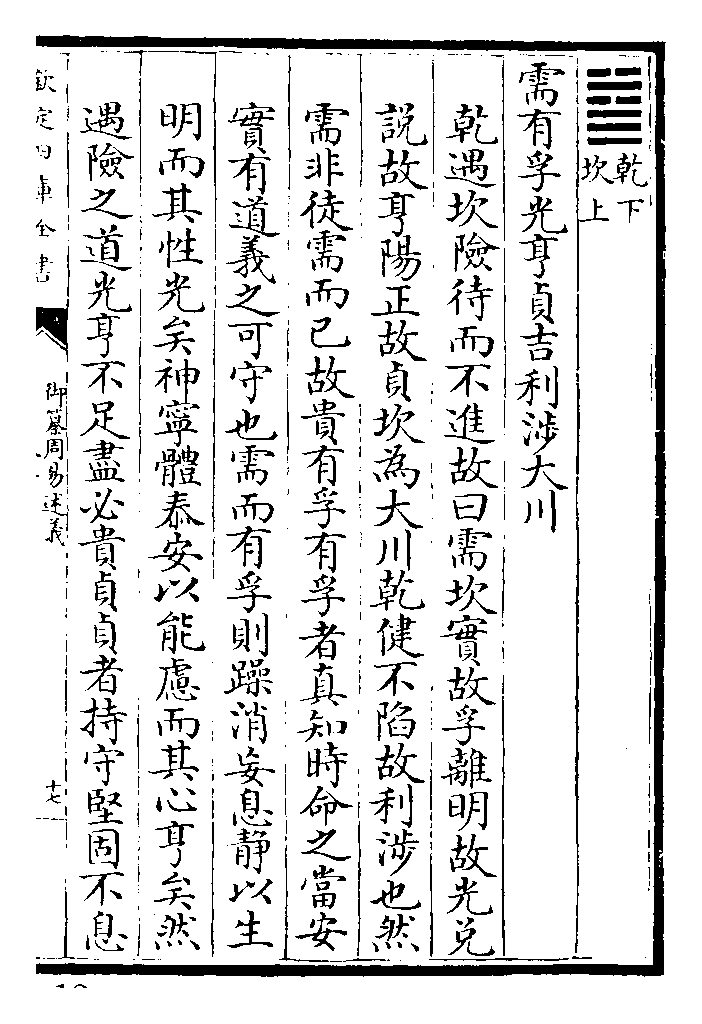 ䷄乾下
坎上
需有孚光亨貞吉利涉大川
乾遇坎險待而不進故曰需坎實故孚離明故光兌
説故亨陽正故貞坎為大川乾健不陷故利涉也然
需非徒需而已故貴有孚有孚者真知時命之當安
實有道義之可守也需而有孚則躁消妄息靜以生
明而其性光矣神寧體泰安以能慮而其心亨矣然
遇險之道光亨不足盡必貴貞貞者持守堅固不息
欽定四庫全書
御纂周易述義
十七